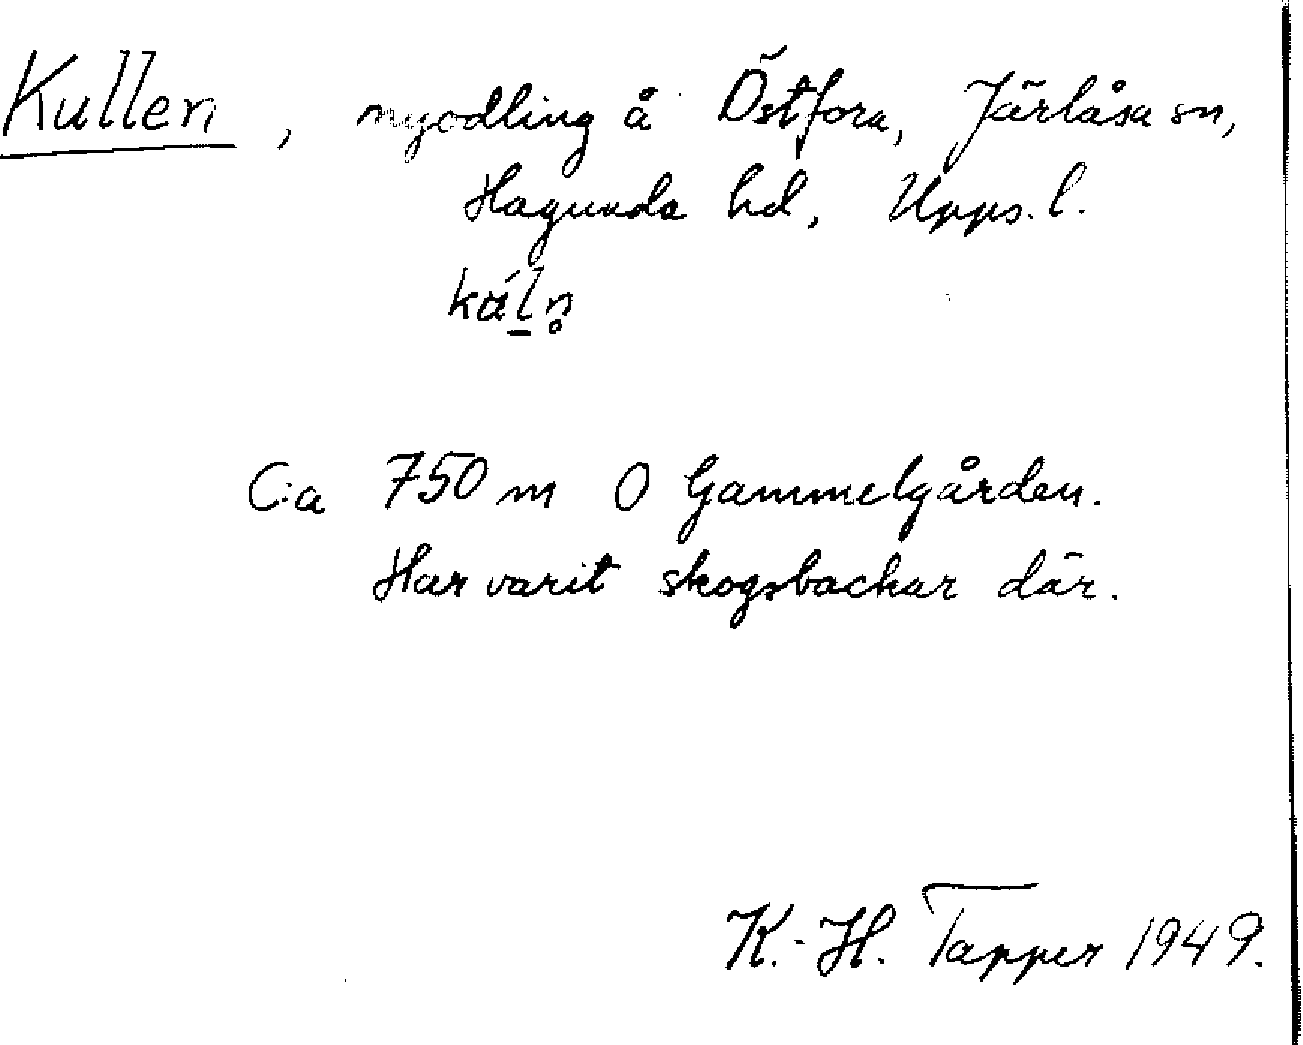 Kullen, nyodling å Östfora, Järlåsa sn,
Hagunda hd, Upps. l.
C:a 750 m O Gammelgården.
Har varit skogsbackar där.
K.-H. Tapper 1949.